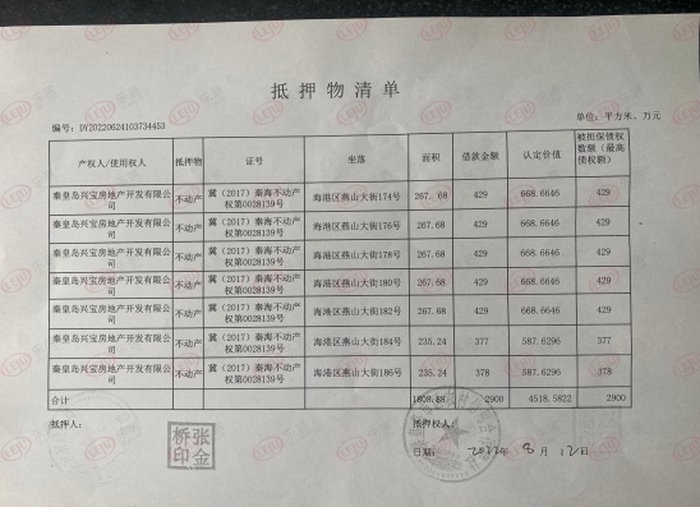 抵押物清单
编号：DY20220624103734453
单位：平方米、万元
产权人/使用权人 抵押物 证号 坐落 面积 借款金额 认定价值 被担保债权数额（最高债权额）
秦皇岛兴宝房地产开发有限公司 不动产 冀（2017）秦海不动产权第0028139号 海港区燕山大街174号 267.68 429 668.6646 429
秦皇岛兴宝房地产开发有限公司 不动产 冀（2017）秦海不动产权第0028139号 海港区燕山大街176号 267.68 429 668.6646 429
秦皇岛兴宝房地产开发有限公司 不动产 冀（2017）秦海不动产权第0028139号 海港区燕山大街178号 267.68 429 668.6646 429
秦皇岛兴宝房地产开发有限公司 不动产 冀（2017）秦海不动产权第0028139号 海港区燕山大街180号 267.68 429 668.6646 429
秦皇岛兴宝房地产开发有限公司 不动产 冀（2017）秦海不动产权第0028139号 海港区燕山大街182号 267.68 429 668.6646 429
秦皇岛兴宝房地产开发有限公司 不动产 冀（2017）秦海不动产权第0028139号 海港区燕山大街184号 235.24 377 587.6296 377
秦皇岛兴宝房地产开发有限公司 不动产 冀（2017）秦海不动产权第0028139号 海港区燕山大街186号 235.24 378 587.6296 378
合计 1808.88 2900 4518.5822 2900
抵押人：
抵押权人：
张金桥印
日期：2022年8月12日
LEJU 乐居